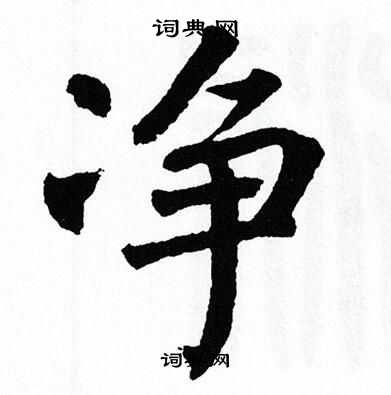 词典网
净
词典网